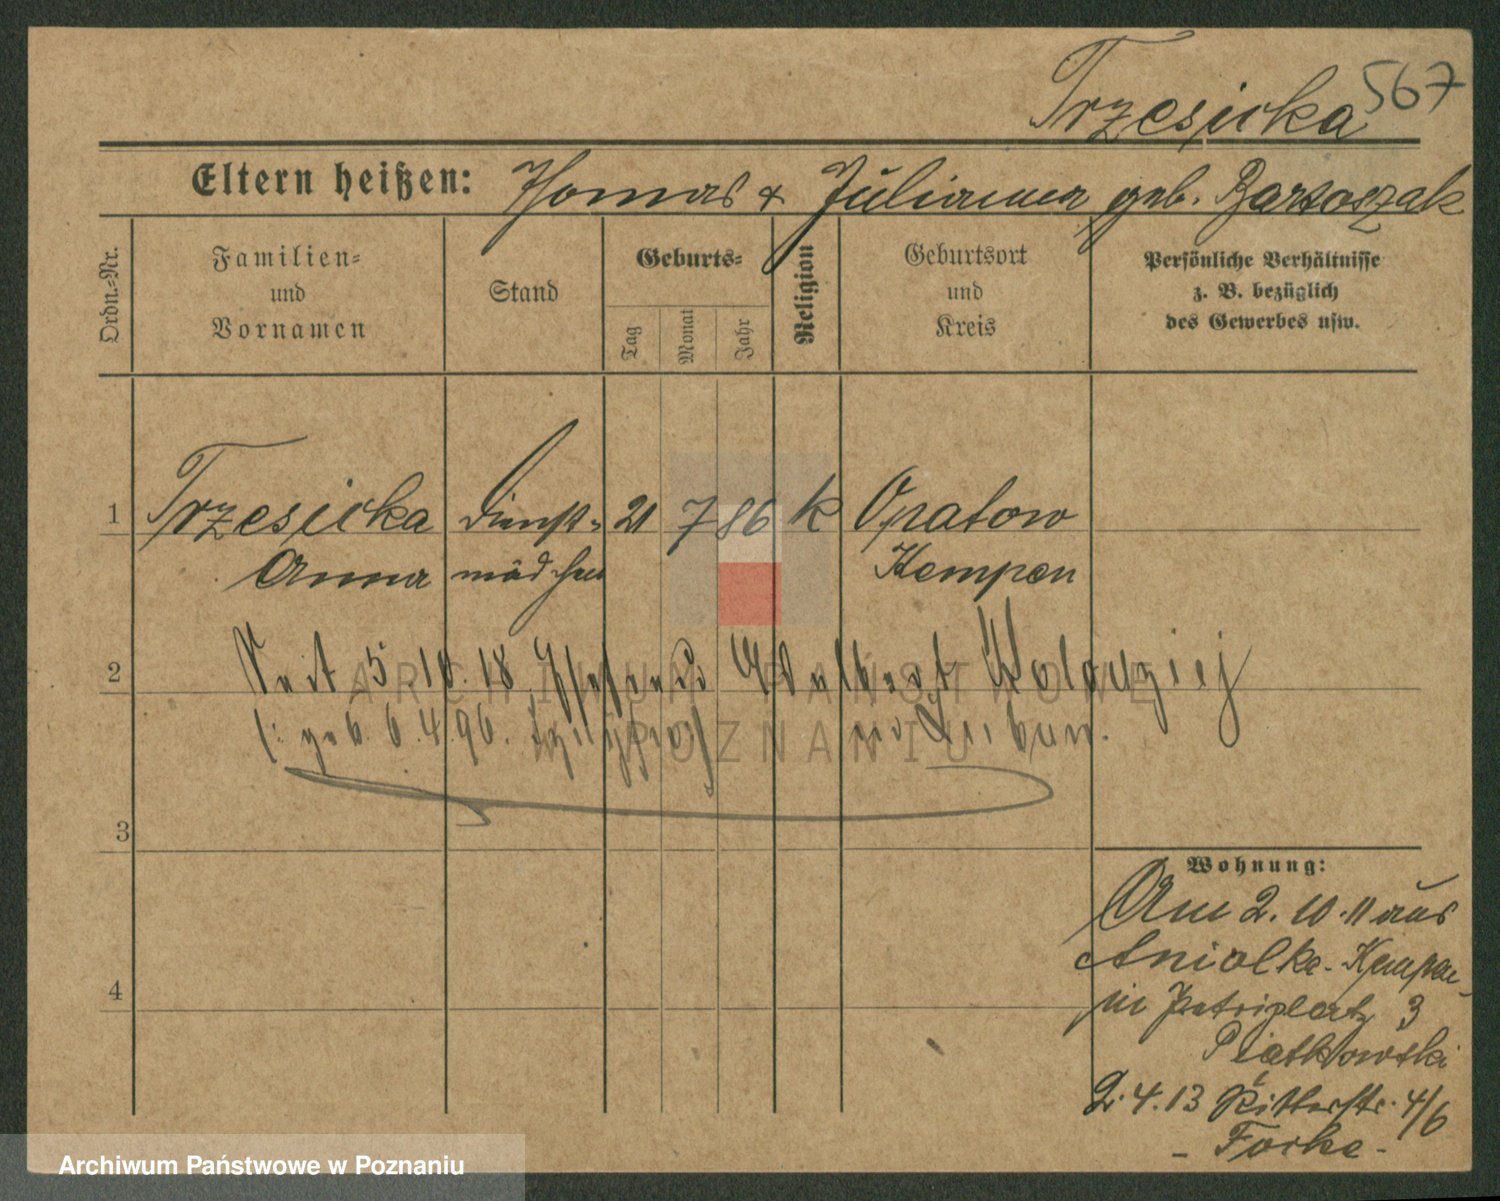 567
Trzesicka
Eltern heißen: Thomas & Julianna geb. Bartoszak
Ordn.-Nr.
Familien-
und
Vornamen
Stand
Geburts-
Tag
Monat
Jahr
Religion
Geburtsort
und
Kreis
Persönliche Verhältnisse
z. B. bezüglich
des Gewerbes usw.
1 Trzesicka Dienst- 21 7 86 k Opatow
Anna mädchen Kempen
2 Seit 5.10.18 Ehefrau d Adalbert Kolodziej
(: geb. 6.4.96.
3
4
Wohnung:
Am 2.10.11 aus
Aniolka-Kempen
in Petriplatz 3
Piatkowski
2.4.13 Ritterstr. 4/6
- Forke -
ARCHIWUM PAŃSTWOWE
W POZNANIU
Archiwum Państwowe w Poznaniu